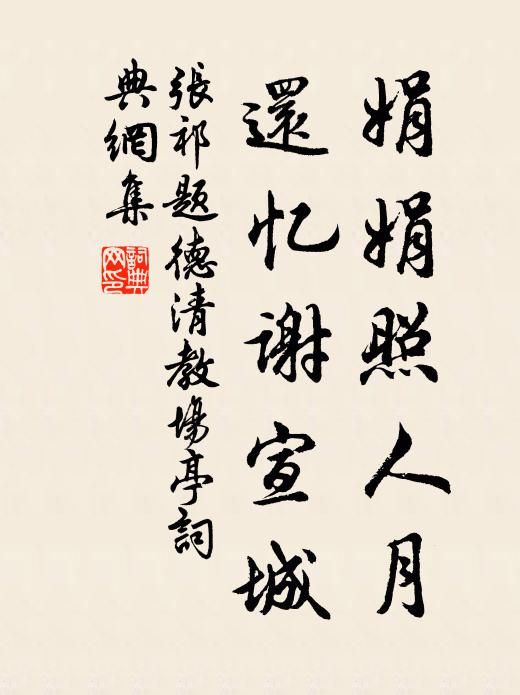 娟娟照人月
還忆謝宣城
張祁題德清教場亭詞
典網集
詞典
网印